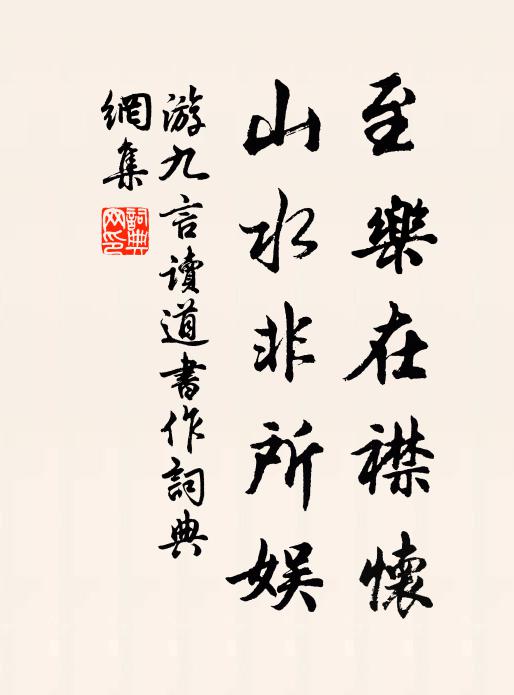 至樂在襟懷
山水非所娱
游九言讀道書作詞典
網集
詞典网印